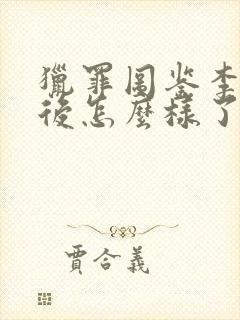 獵罪圖鉴李
後怎麼樣了
賈合義